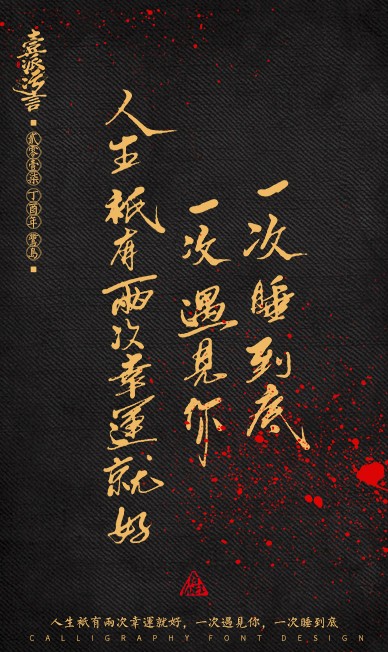 壹派污言
貳零壹柒 丁酉年
人生衹有兩次幸運就好
一次遇見你
一次睡到底
人生衹有兩次幸運就好，一次遇見你，一次睡到底
CALLIGRAPHY FONT DESIGN